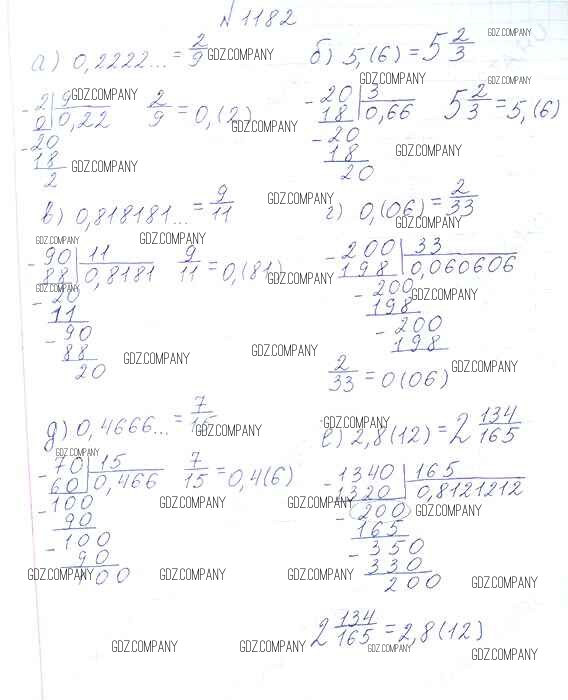 № 1182
а) 0,2222... = 2/9 GDZ.COMPANY
б) 5,(6) = 5 2/3 GDZ.COMPANY
GDZ.COMPANY
- 2 | 9 GDZ.COMPANY
0 | 0,22
- 20
18 GDZ.COMPANY
2
2/9 = 0,(2)
GDZ.COMPANY
- 20 | 3
18 | 0,66
- 20
18
20
5 2/3 = 5,(6)
GDZ.COMPANY
GDZ.COMPANY
в) 0,818181... = 9/11
GDZ.COMPANY
г) 0,(06) = 2/33
GDZ.COMPANY
GDZ.COMPANY GDZ.COMPANY
- 90 | 11
88 | 0,8181
GDZ.COMPANY
- 20
11
- 90
88
20
9/11 = 0,(81)
GDZ.COMPANY
GDZ.COMPANY
GDZ.COMPANY
- 200 | 33
198 | 0,060606
- 200 GDZ.COMPANY
198
- 200
198
2/33 = 0(06)
GDZ.COMPANY
д) 0,4666... = 7/15
GDZ.COMPANY
е) 2,8(12) = 2 134/165
GDZ.COMPANY
GDZ.COMPANY
- 70 | 15
60 | 0,466
- 100
90
- 100
90
100
7/15 = 0,4(6)
GDZ.COMPANY GDZ.COMPANY
- 1340 | 165
1320 | 0,8121212
- 200 GDZ.COMPANY
165
- 350
330
200
GDZ.COMPANY GDZ.COMPANY GDZ.COMPANY GDZ.COMPANY
2 134/165 = 2,8(12)
GDZ.COMPANY GDZ.COMPANY GDZ.COMPANY GDZ.COMPANY